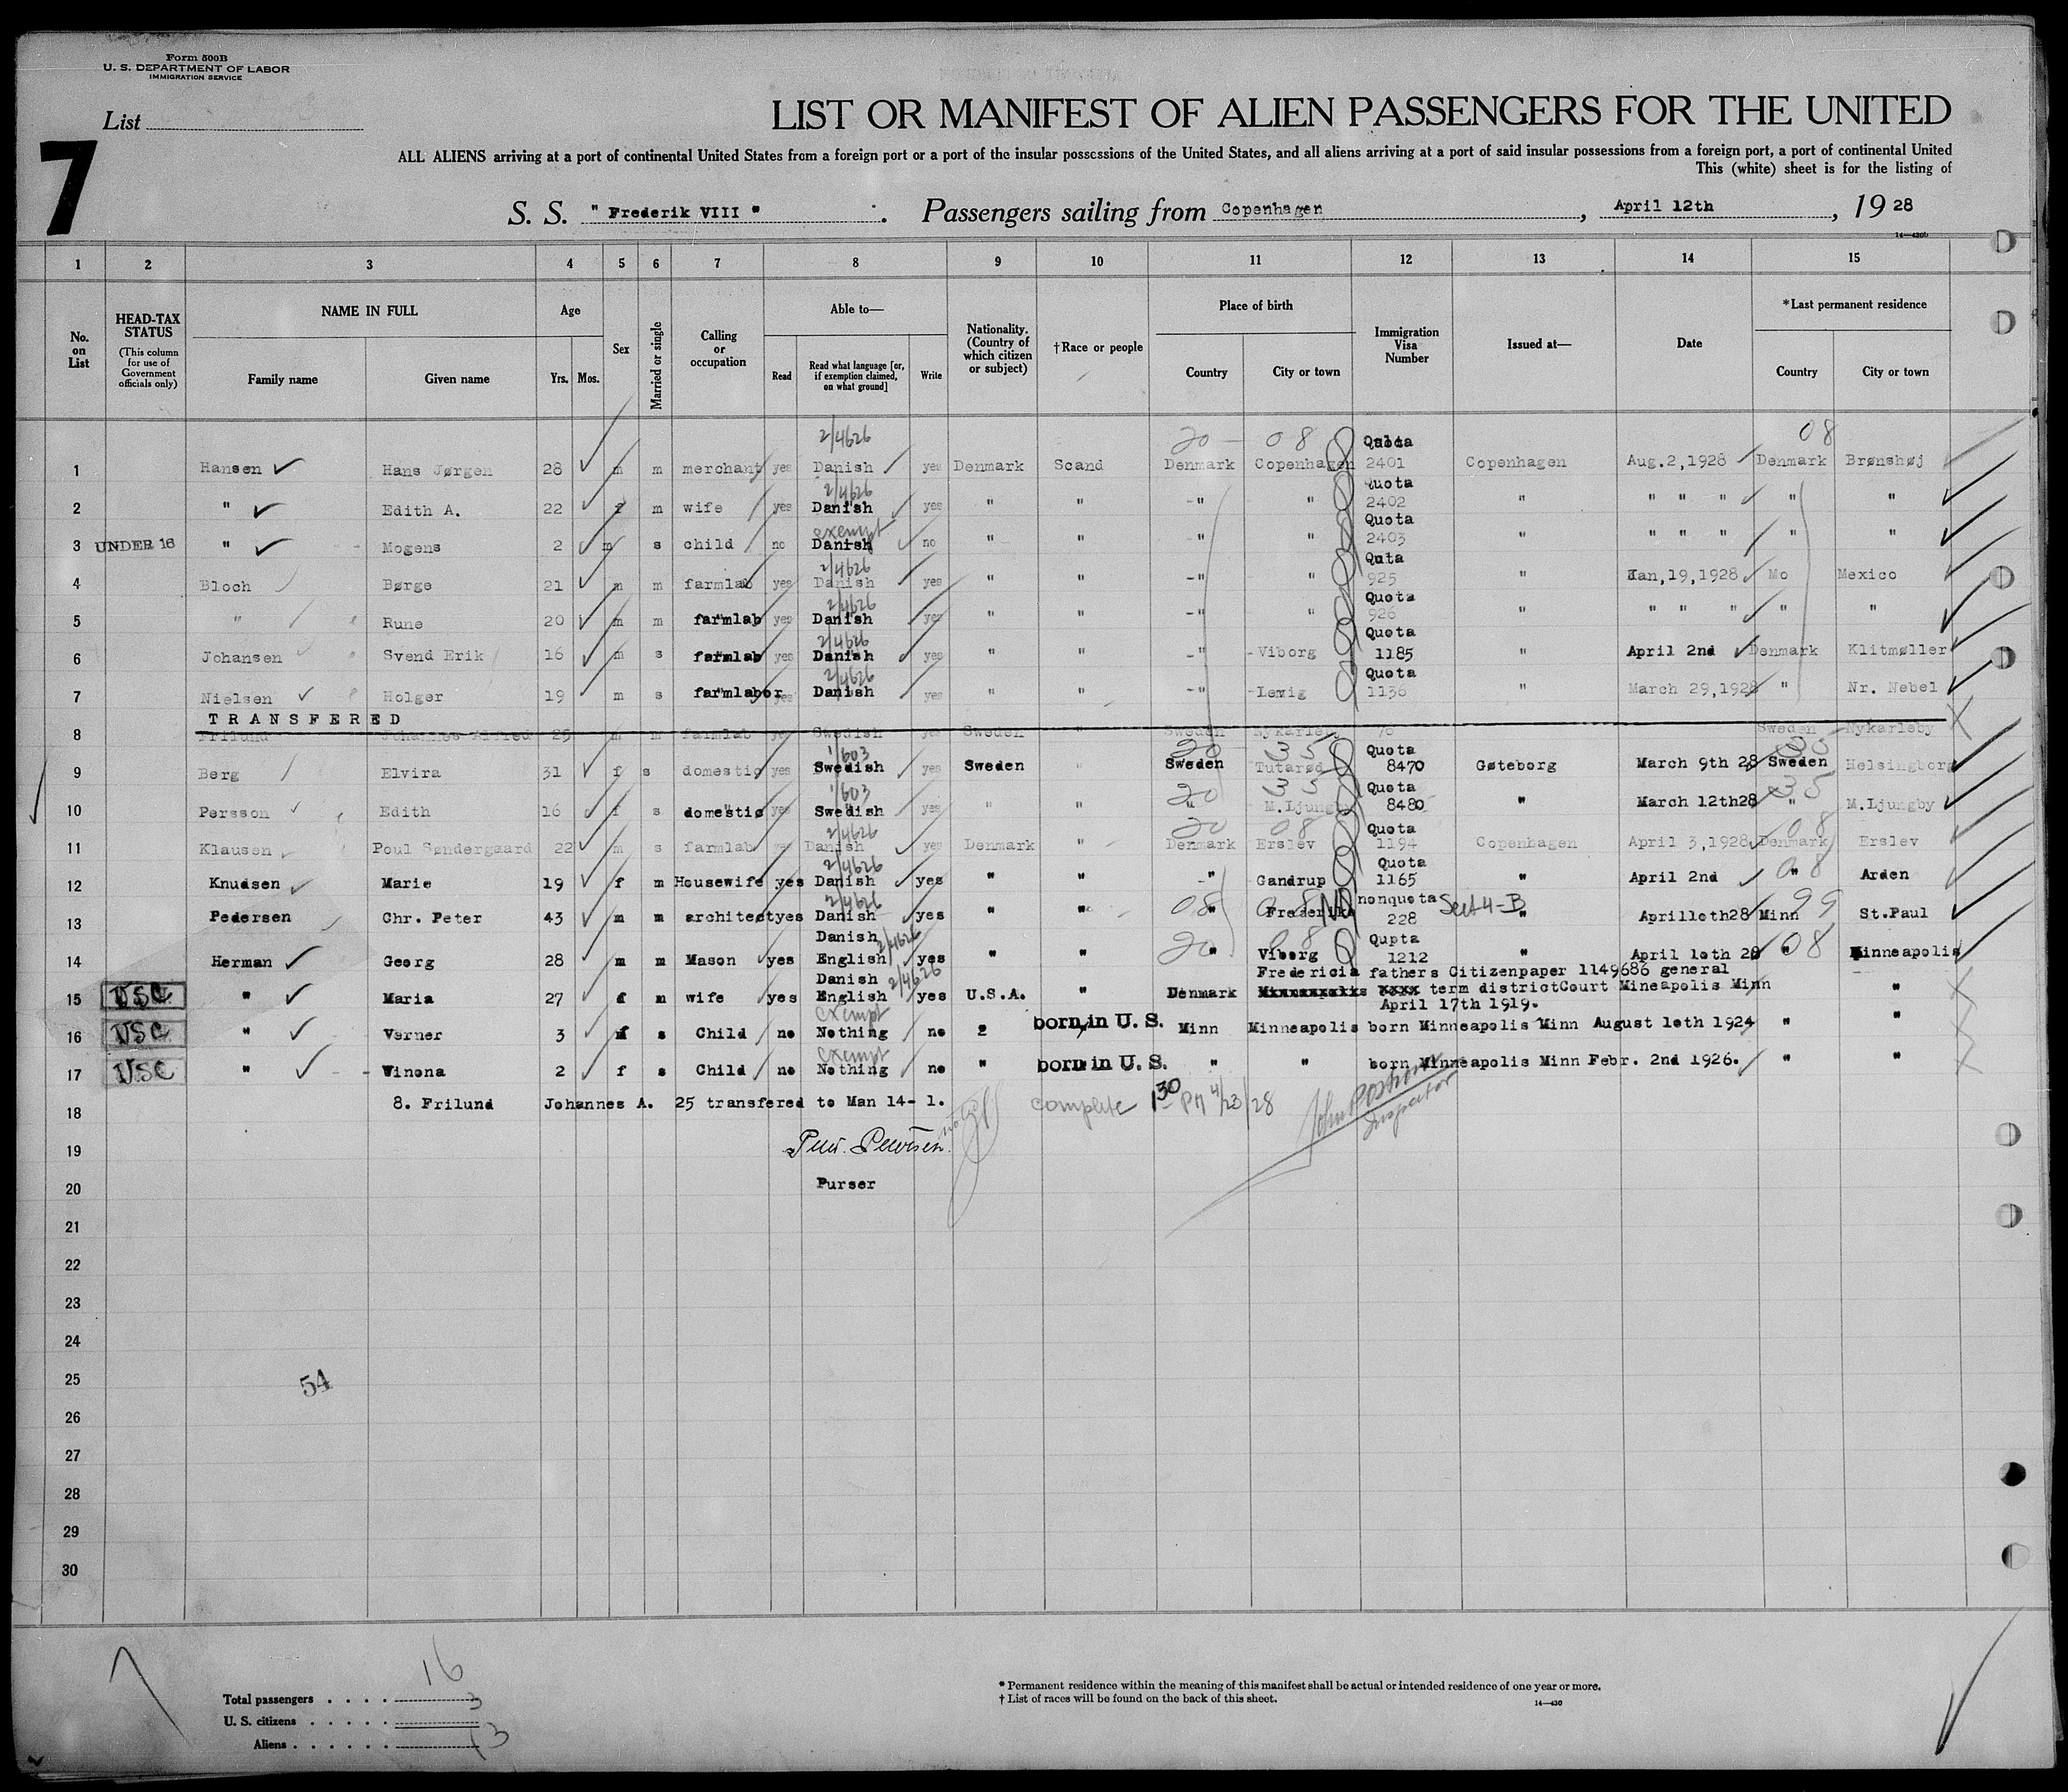 Form 500B
U. S. DEPARTMENT OF LABOR
IMMIGRATION SERVICE
List
7
LIST OR MANIFEST OF ALIEN PASSENGERS FOR THE UNITED
ALL ALIENS arriving at a port of continental United States from a foreign port or a port of the insular possessions of the United States, and all aliens arriving at a port of said insular possessions from a foreign port, a port of continental United
This (white) sheet is for the listing of
S. S. " Frederik VIII " Passengers sailing from Copenhagen, April 12th, 19 28
14—430b
1 2 3 4 5 6 7 8 9 10 11 12 13 14 15
No. on List
HEAD-TAX STATUS (This column for use of Government officials only)
NAME IN FULL
Family name Given name
Age Yrs. Mos.
Sex
Married or single
Calling or occupation
Able to—
Read Read what language [or, if exemption claimed, on what ground] Write
Nationality. (Country of which citizen or subject)
†Race or people
Place of birth
Country City or town
Immigration Visa Number
Issued at—
Date
*Last permanent residence
Country City or town
2/4626 20 08 Quota 08
1 Hansen Hans Jørgen 28 m m merchant yes Danish yes Denmark Scand Denmark Copenhagen 2401 Copenhagen Aug.2,1928 Denmark Brønshøj
2/4626 Quota
2 " Edith A. 22 f m wife yes Danish yes " " " " 2402 " " " " " "
exempt Quota
3 UNDER 16 " Mogens 2 m s child no Danish no " " " " 2403 " " " " " "
2/4626 Quta
4 Bloch Børge 21 m m farmlab yes Danish yes " " " " 925 " Jan,19,1928 Mo Mexico
2/4626 Quota
5 " Rune 20 m m farmlab yes Danish yes " " " " 926 " " " " " "
2/4626 Quota
6 Johansen Svend Erik 16 m s farmlab yes Danish yes " " " Viborg 1185 " April 2nd Denmark Klitmøller
2/4626 Quota
7 Nielsen Holger 19 m s farmlabor yes Danish yes " " " Lemvig 1136 " March 29,1928 " Nr. Nebel
TRANSFERED
8 Frilund Johannes Alfred 25 m m farmlab yes Swedish yes Sweden " Sweden Nykarleby 76 Sweden Nykarleby
1/603 20 35 Quota 35
9 Berg Elvira 31 f s domestic yes Swedish yes Sweden " Sweden Tutarød 8470 Gøteborg March 9th 28 Sweden Helsingborg
1/603 20 35 Quota 35
10 Persson Edith 16 f s domestic yes Swedish yes " " " M.Ljungby 8480 " March 12th28 " M.Ljungby
2/4626 20 08 Quota 08
11 Klausen Poul Søndergaard 22 m s farmlab yes Danish yes Denmark " Denmark Erslev 1194 Copenhagen April 3,1928 Denmark Erslev
2/4626 Quota
12 Knudsen Marie 19 f m Housewife yes Danish yes " " " Gandrup 1165 " April 2nd " 08 Arden
2/4626 nonquota Sect 4-B
13 Pedersen Chr. Peter 43 m m architect yes Danish yes " " 08 " 228 " April1oth28 Minn 99 St.Paul
Danish 2/4626 Qupta
14 Herman Georg 28 m m Mason yes English yes " " 20 " 08 Viborg 1212 " April 1oth 28 " 08 Minneapolis
Danish 2/4626 Fredericia fathers Citizenpaper 1149686 general
15 USC " Maria 27 f m wife yes English yes U.S.A. " Denmark Minneapolis xxxx term districtCourt Mineapolis Minn "
exempt April 17th 1919.
16 USC " Verner 3 m s Child no Nothing no 2 born in U. S. Minn Minneapolis born Minneapolis Minn August 1oth 1924 " "
exempt
17 USC " Winona 2 f s Child no Nothing no " born in U. S. " " born Minneapolis Minn Febr. 2nd 1926. " "
18 8. Frilund Johannes A. 25 transfered to Man 14- 1. Complete 1 30 PM 4/23/28
Inspector
19
20 Purser
21
22
23
24
25
54
26
27
28
29
30
Total passengers . . . . 16
U. S. citizens . . . . . 3
Aliens . . . . . . 13
* Permanent residence within the meaning of this manifest shall be actual or intended residence of one year or more.
† List of races will be found on the back of this sheet.
14—430